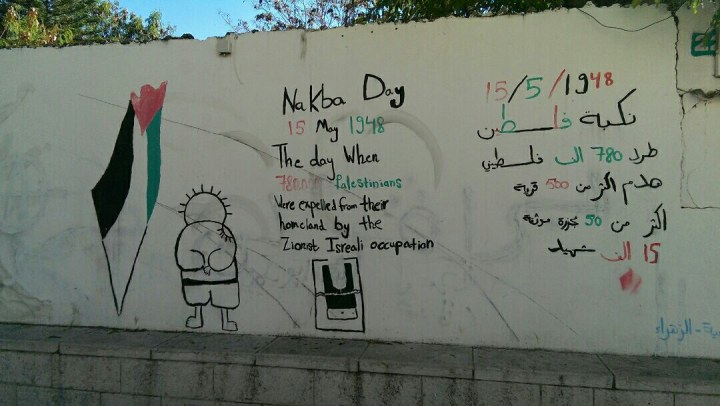 Nakba Day
15 May 1948
The day When
780.000 Palestinians
Were expelled from their
homeland by the
Zionst Isreali occupation
15/5/1948
نكبة فلسطين
طرد 780 الف فلسطيني
هدم اكثر من 500 قرية
اكثر من 50 مجزرة موثقة
15 الف شهيد
الزهراء